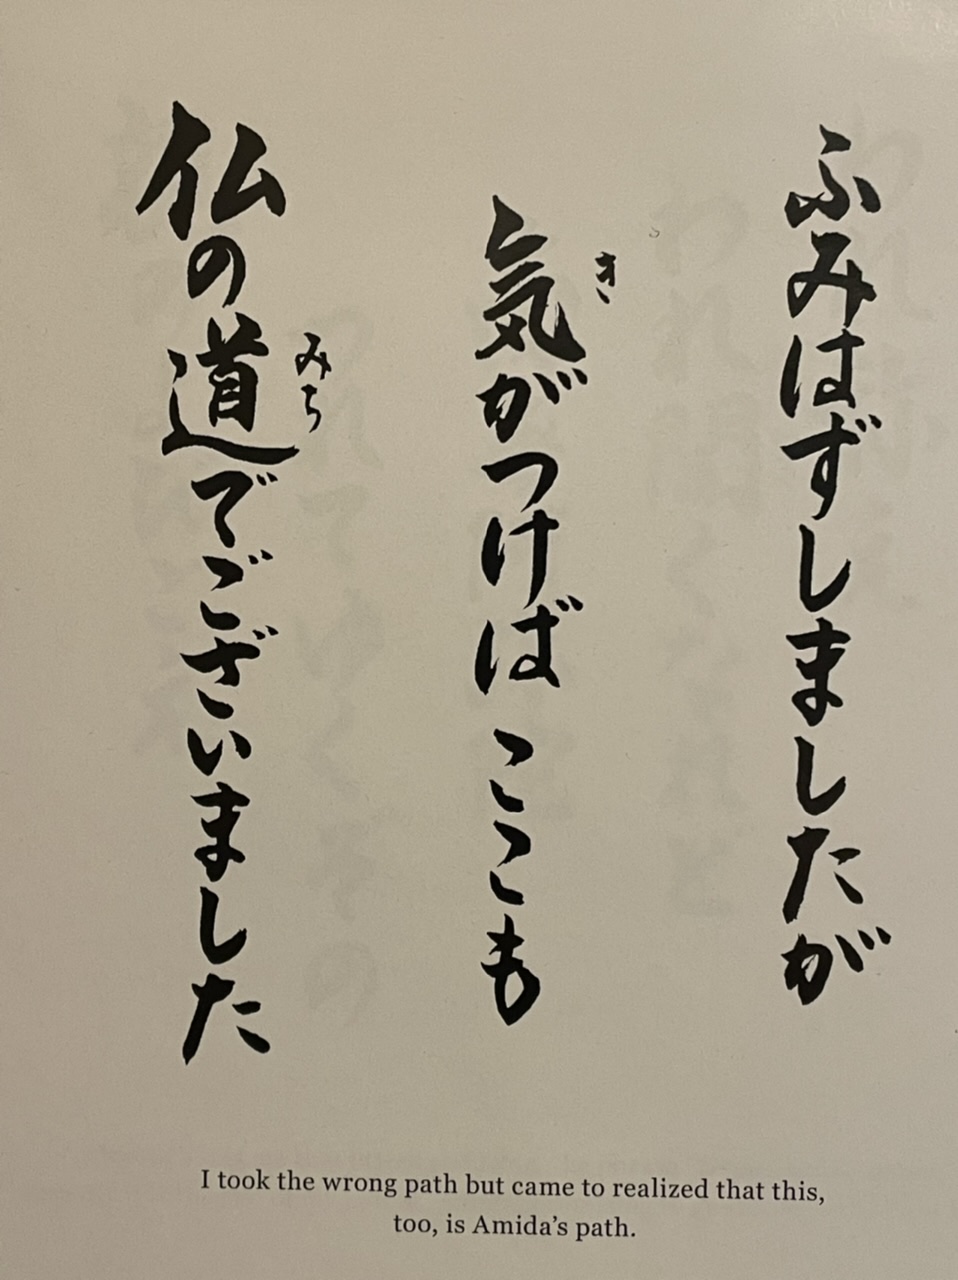 ふみはずしましたが
気がつけば ここも
き
仏の道でございました
みち
I took the wrong path but came to realized that this,
too, is Amida’s path.